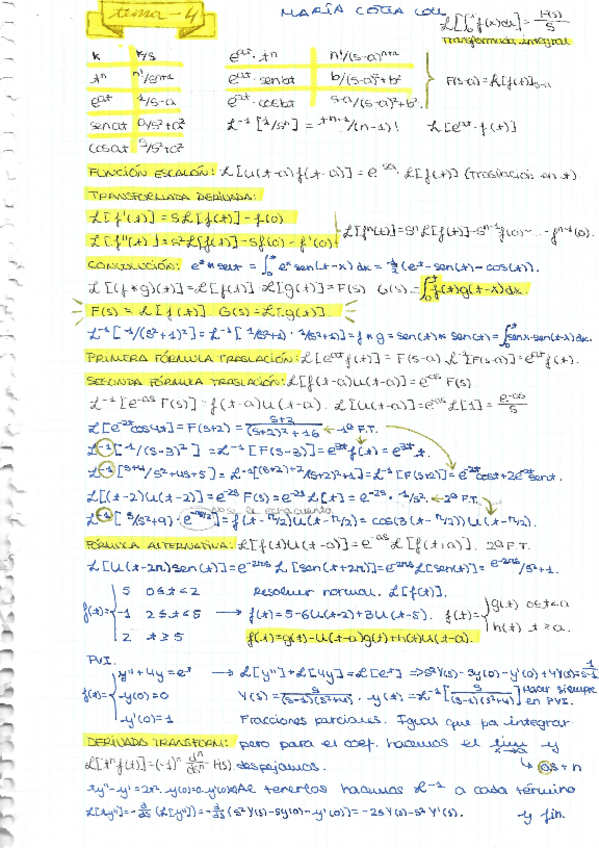 tema-4
MARÍA COTTA
L[∫f(x)dx] = F(s)/s
Transformada integral
k | k/s
tⁿ | n!/sⁿ⁺¹
eᵃᵗ | 1/s-a
senat | a/s²+a²
cosat | s/s²+a²
eᵃᵗ·tⁿ | n!/(s-a)ⁿ⁺¹
eᵃᵗ·senbt | b/(s-a)²+b²
eᵃᵗ·cosbt | s-a/(s-a)²+b²
F(s-a) = L[f(t)]s→s-a
L⁻¹[1/sⁿ] = tⁿ⁻¹/(n-1)! L[eᵃᵗ·f(t)]
FUNCIÓN ESCALÓN: L[u(t-a)f(t-a)] = e⁻ˢᵃ·L[f(t)] (traslación en t).
TRANSFORMADA DERIVADA:
L[f'(t)] = sL[f(t)] - f(0)
L[f''(t)] = s²L[f(t)] - sf(0) - f'(0)
L[fⁿ(t)] = sⁿL[f(t)] - sⁿ⁻¹f(0) - ... - fⁿ⁻¹(0).
CONVOLUCIÓN: eᵗ * sent = ∫eˣsen(t-x)dx = ½(eᵗ-sen(t)-cos(t)).
L[(f*g)(t)] = L[f(t)]·L[g(t)] = F(s)·G(s) = ∫f(x)g(t-x)dx.
F(s) = L[f(t)]. G(s) = L[g(t)].
L⁻¹[1/(s²+1)²] = L⁻¹[1/s²+1 · 1/s²+1] = f*g = sen(t)*sen(t) = ∫senx·sen(t-x)dx.
PRIMERA FÓRMULA TRASLACIÓN: L[eᵃᵗf(t)] = F(s-a) L⁻¹[F(s-a)] = eᵃᵗf(t).
SEGUNDA FÓRMULA TRASLACIÓN: L[f(t-a)u(t-a)] = e⁻ᵃˢF(s)
L⁻¹[e⁻ᵃˢF(s)] = f(t-a)u(t-a). L[u(t-a)] = e⁻ᵃˢL[1] = e⁻ᵃˢ/s
L[e⁻²ᵗcos4t] = F(s+2) = s+2/(s+2)²+16 ← 1ª F.T.
L⁻¹[1/(s-3)²] = L⁻¹[F(s-3)] = e³ᵗf(t) = e³ᵗt.
L⁻¹[s+4/s²+4s+5] = L⁻¹[(s+2)+2/(s+2)²+1] = L⁻¹[F(s+2)] = e⁻²ᵗcost+2e⁻²ᵗsent.
L[(t-2)u(t-2)] = e⁻²ˢF(s) = e⁻²ˢL[t] = e⁻²ˢ·1/s². ← 2ª F.T.
L⁻¹[s/s²+9 · e⁻ˢπ/²] = f(t-π/2)u(t-π/2) = cos(3(t-π/2))u(t-π/2).
FÓRMULA ALTERNATIVA: L[f(t)u(t-a)] = e⁻ᵃˢL[f(t+a)]. 2ª F.T.
L[u(t-2π)sen(t)] = e⁻²πˢL[sen(t+2π)] = e⁻²πˢL[sen(t)] = e⁻²πˢ/s²+1.
f(t) = { 5 0≤t<2 Resolver normal. L[f(t)].
-1 2≤t<5 → f(t) = 5-6u(t-2)+3u(t-5). f(t) = { g(t) 0≤t<a
2 t≥5 f(t) = g(t)-u(t-a)g(t)+h(t)u(t-a). h(t) t≥a.
PVI.
y''+4y = eᵗ → L[y'']+L[4y] = L[eᵗ] ⇒ s²Y(s)-sy(0)-y'(0)+4Y(s) = 1/s-1
f(t) = y(0) = 0 Y(s) = s/(s-1)(s²+4) · y(t) = L⁻¹[s/(s-1)(s²+4)] Hacer siempre en PVI.
y'(0) = 1 Fracciones parciales. Igual que pa integrar
DERIVADA TRANSFORM: pero para el coef. hacemos el lim y
L[tⁿf(t)] = (-1)ⁿ dⁿ/dsⁿ F(s) despejamos. ↳ as+n
ty''-y' = 2t². y(0)=0. Al tenerlos hacemos L⁻¹ a cada término
L[ty''] = -d/ds(L[y'']) = -d/ds(s²Y(s)-sy(0)-y'(0)) = -2sY(s)-s²Y'(s). y fin.